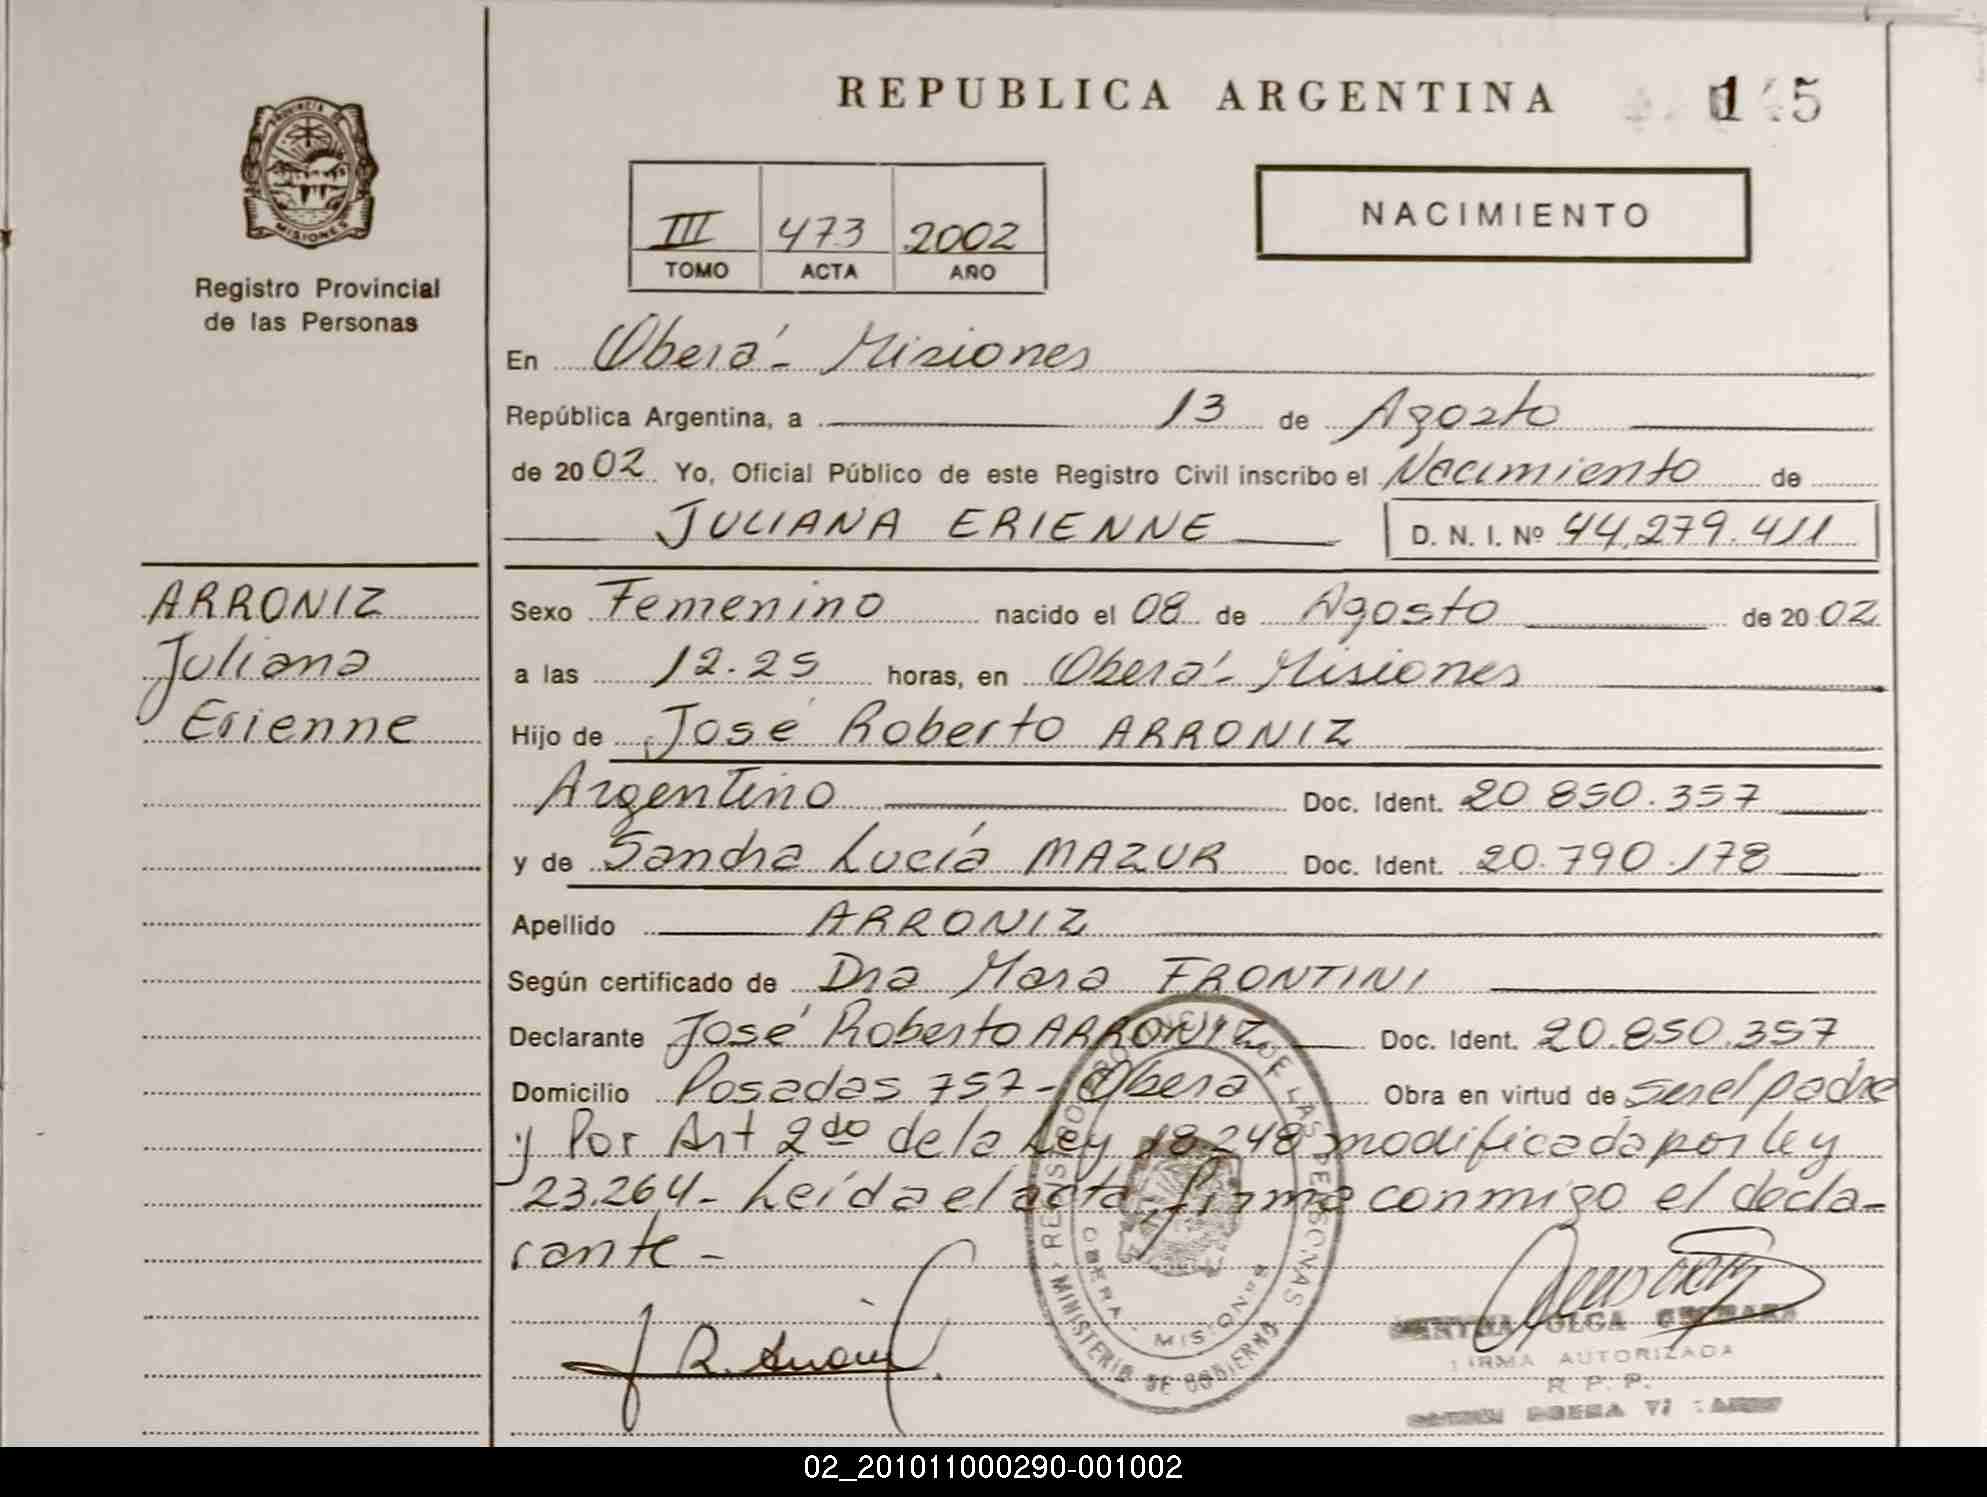 REPUBLICA ARGENTINA
PROVINCIA DE MISIONES
Registro Provincial
de las Personas
III 473 2002
TOMO ACTA AÑO
NACIMIENTO
En Oberá - Misiones
República Argentina, a 13 de Agosto
de 2002 Yo, Oficial Público de este Registro Civil inscribo el Nacimiento de
JULIANA ERIENNE D. N. I. Nº 44.279.411
ARRONIZ
Juliana
Erienne
Sexo Femenino nacido el 08 de Agosto de 2002
a las 12.25 horas, en Oberá - Misiones
Hijo de José Roberto ARRONIZ
Argentino Doc. Ident. 20.850.357
y de Sandra Lucía MAZUR Doc. Ident. 20.790.178
Apellido ARRONIZ
Según certificado de Dra Mara FRONTINI
Declarante José Roberto ARRONIZ Doc. Ident. 20.850.357
Domicilio Posadas 757 - Oberá Obra en virtud de ser el padre
y Por Art 2do de la Ley 18.248 modificada por ley
23.264 - Leída el acta, firma conmigo el decla-
rante -
REGISTRO PROVINCIAL DE LAS PERSONAS
MINISTERIO DE GOBIERNO
OBERA - MISIONES
J R. Arroniz
OLGA
FIRMA AUTORIZADA
R. P. P.
02_201011000290-001002